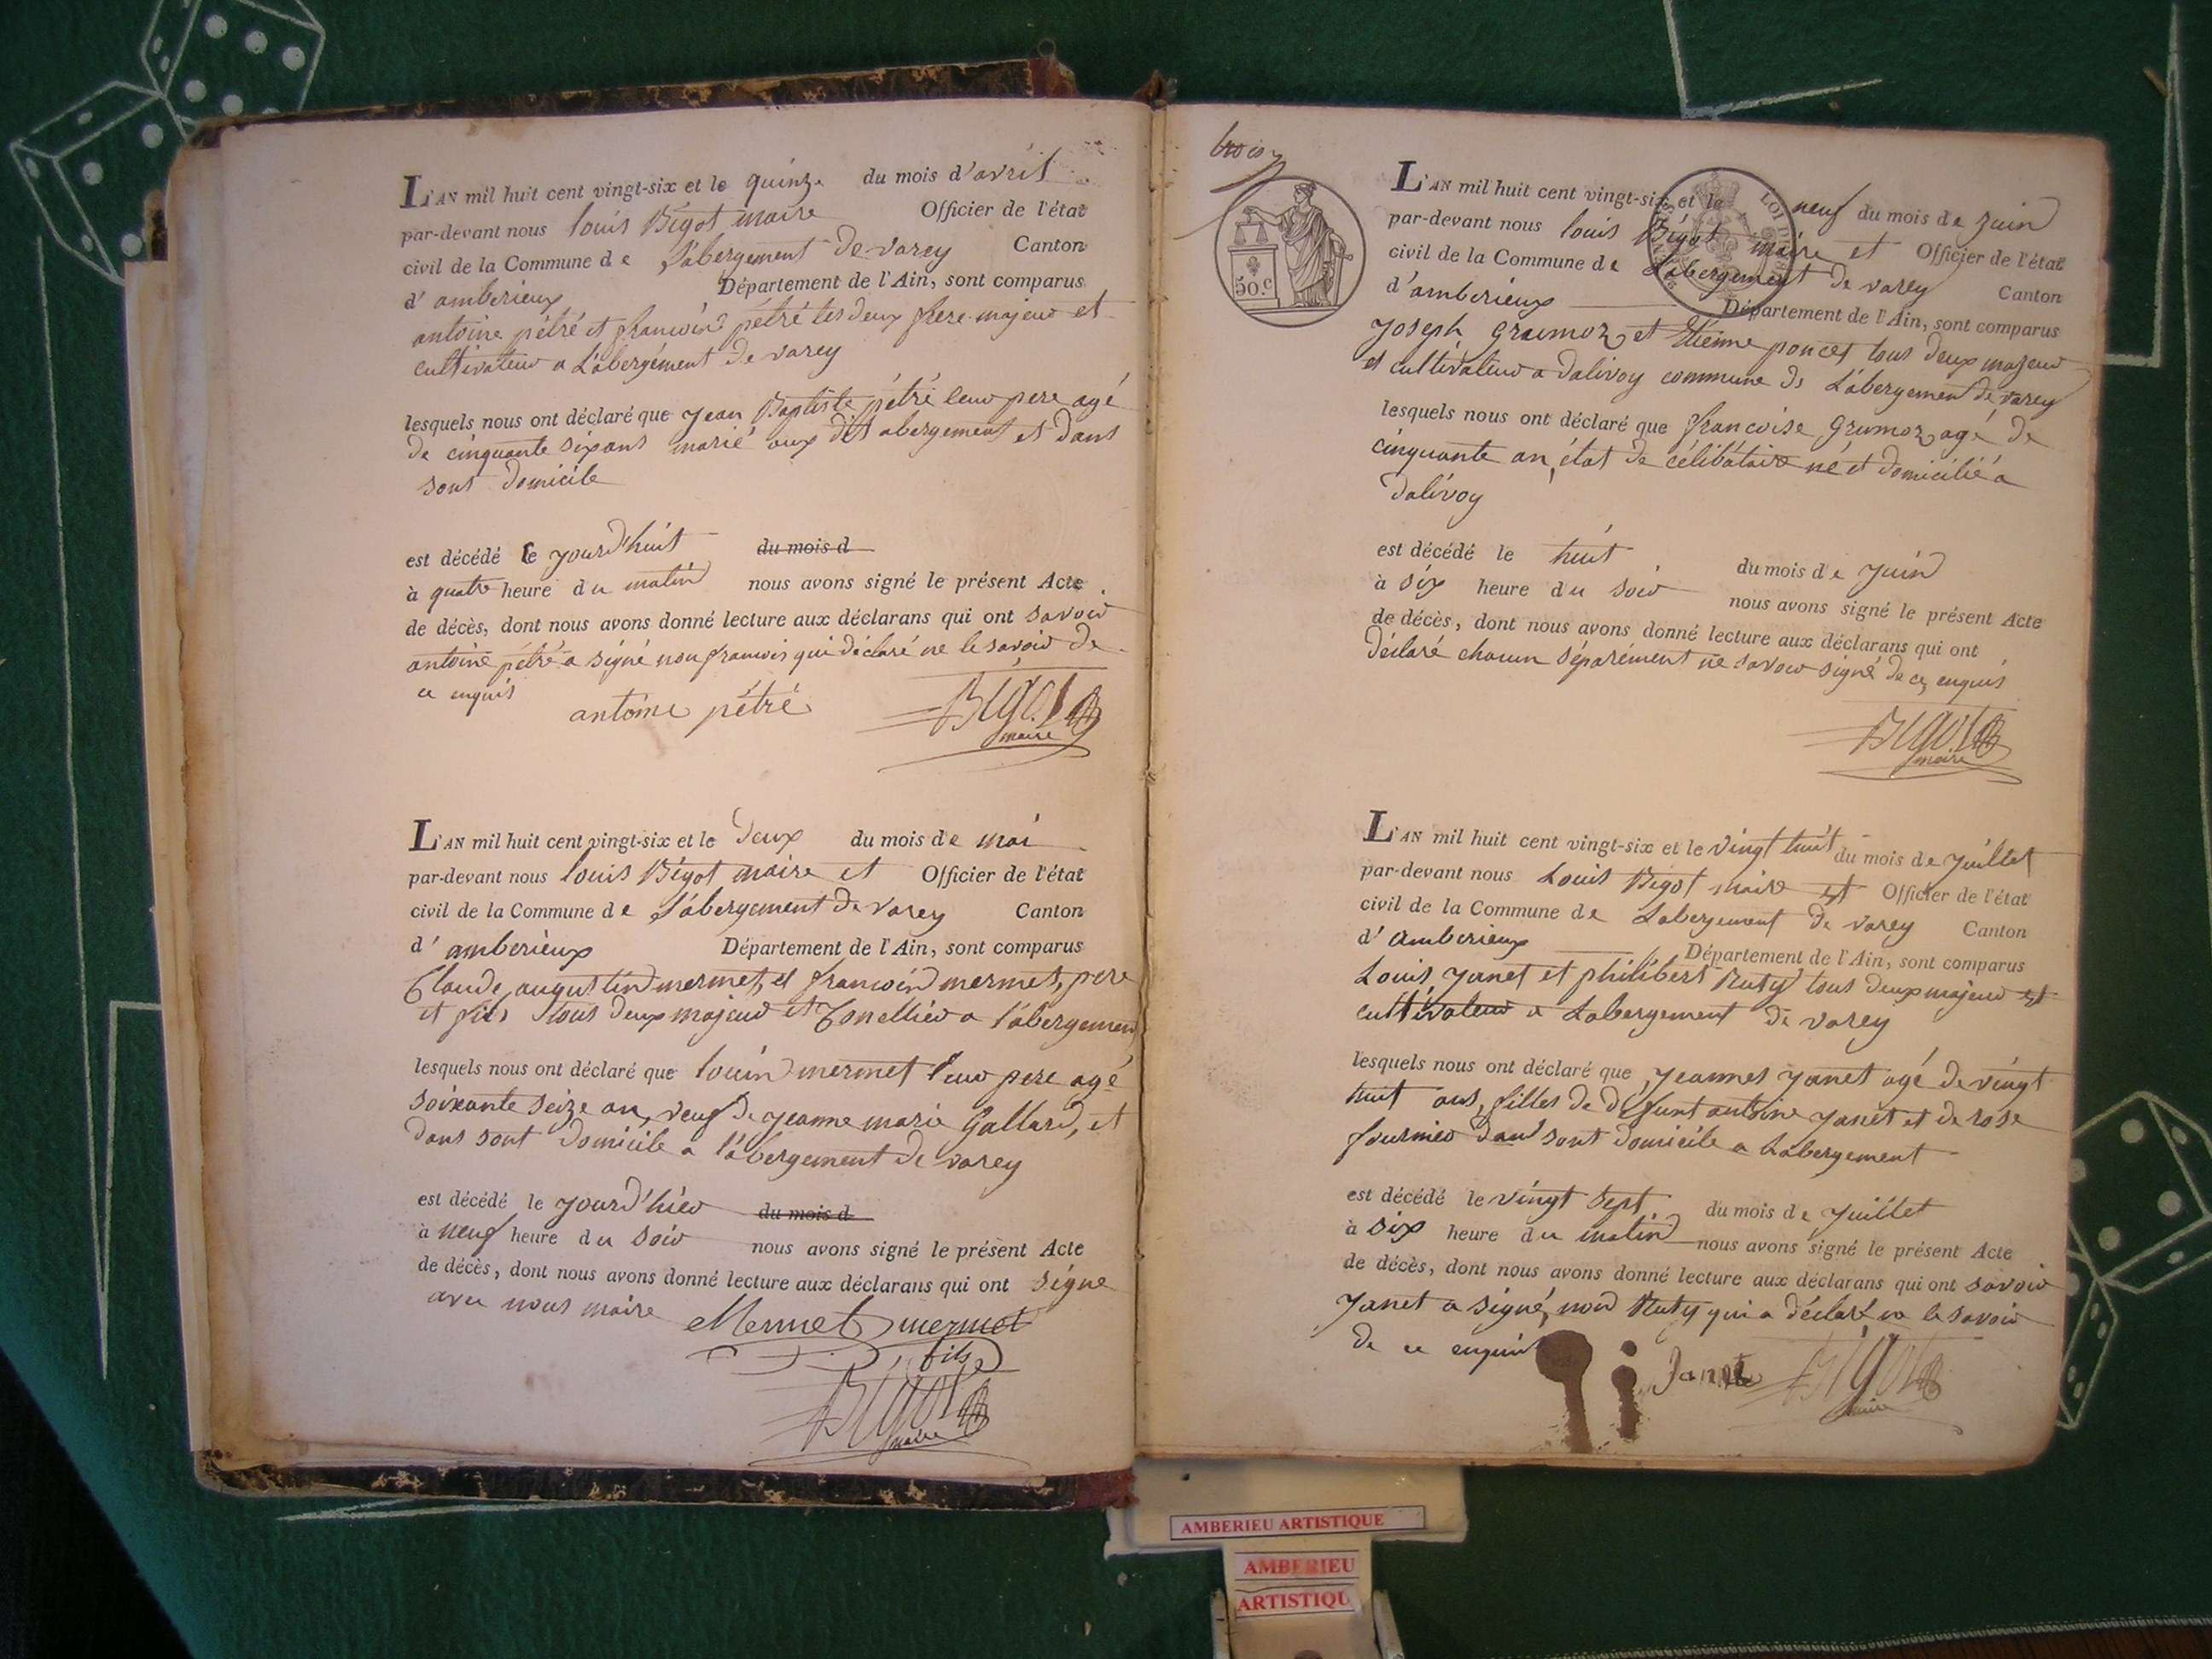 L'AN mil huit cent vingt-six et le quinze du mois d'avril
par-devant nous louis Bigot maire Officier de l'état
civil de la Commune de L'abergement de varey Canton
d'amberieux Département de l'Ain, sont comparus
antoine pétré et francois pétré les deux frere majeur et
cultivateur a L'abergément de varey
lesquels nous ont déclaré que jean Baptiste pétré leur pere agé
de cinquante six ans marié aux dit abergement et dans
sont domicile
est décédé le jourd'huit du mois d
à quatre heure du matin nous avons signé le présent Acte
de décès, dont nous avons donné lecture aux déclarans qui ont savoir
antoine pétré a signé non francois qui déclaré ne le savoir de
ce enquis
antoine pétré Bigot
maire
L'AN mil huit cent vingt-six et le deux du mois de mai
par-devant nous louis Bigot maire et Officier de l'état
civil de la Commune de L'abergement de varey Canton
d'amberieux Département de l'Ain, sont comparus
Claude augustin mermet, et francois mermet, pere
et fils tous deux majeur et Tonellier a l'abergement
lesquels nous ont déclaré que louis mermet leur pere agé
soixante seize an, veuf de jeanne marie Gallard, et
dans sont domicile a l'abergement de varey
est décédé le jourd'hier du mois d
à neuf heure du soir nous avons signé le présent Acte
de décès, dont nous avons donné lecture aux déclarans qui ont signe
avec nous maire Mermet mermet
fils
Bigot
maire
trois
50.c
LOI
L'AN mil huit cent vingt-six et le neuf du mois de juin
par-devant nous louis Bigot maire et Officier de l'état
civil de la Commune de Labergement de varey Canton
d'amberieux Département de l'Ain, sont comparus
Joseph Grumoz et Etienne poncet tous deux majeur
et cultivateur a dalivoy commune de L'abergement de varey
lesquels nous ont déclaré que francoise Grumoz agé de
cinquante an, état de célibataire né et domicilié a
dalivoy
est décédé le huit du mois de juin
à six heure du soir nous avons signé le présent Acte
de décès, dont nous avons donné lecture aux déclarans qui ont
déclaré chacun séparément ne savoir signé de ce enquis
Bigot
maire
L'AN mil huit cent vingt-six et le vingt huit du mois de juillet
par-devant nous Louis Bigot maire et Officier de l'état
civil de la Commune de Labergement de varey Canton
d'amberieux Département de l'Ain, sont comparus
Louis Janet et philibert Ruty tous deux majeur et
cultivateur a Labergement de varey
lesquels nous ont déclaré que jeannes janet agé de vingt
huit ans, filles de défunt antoine janet et de rose
fournier dans sont domicile a Labergement
est décédé le vingt sept du mois de juillet
à six heure du matin nous avons signé le présent Acte
de décès, dont nous avons donné lecture aux déclarans qui ont savoir
janet a signé, non Ruty qui a déclaré ne le savoir
de ce enquis Janet Bigot
maire
AMBERIEU ARTISTIQUE
AMBERIEU
ARTISTIQU